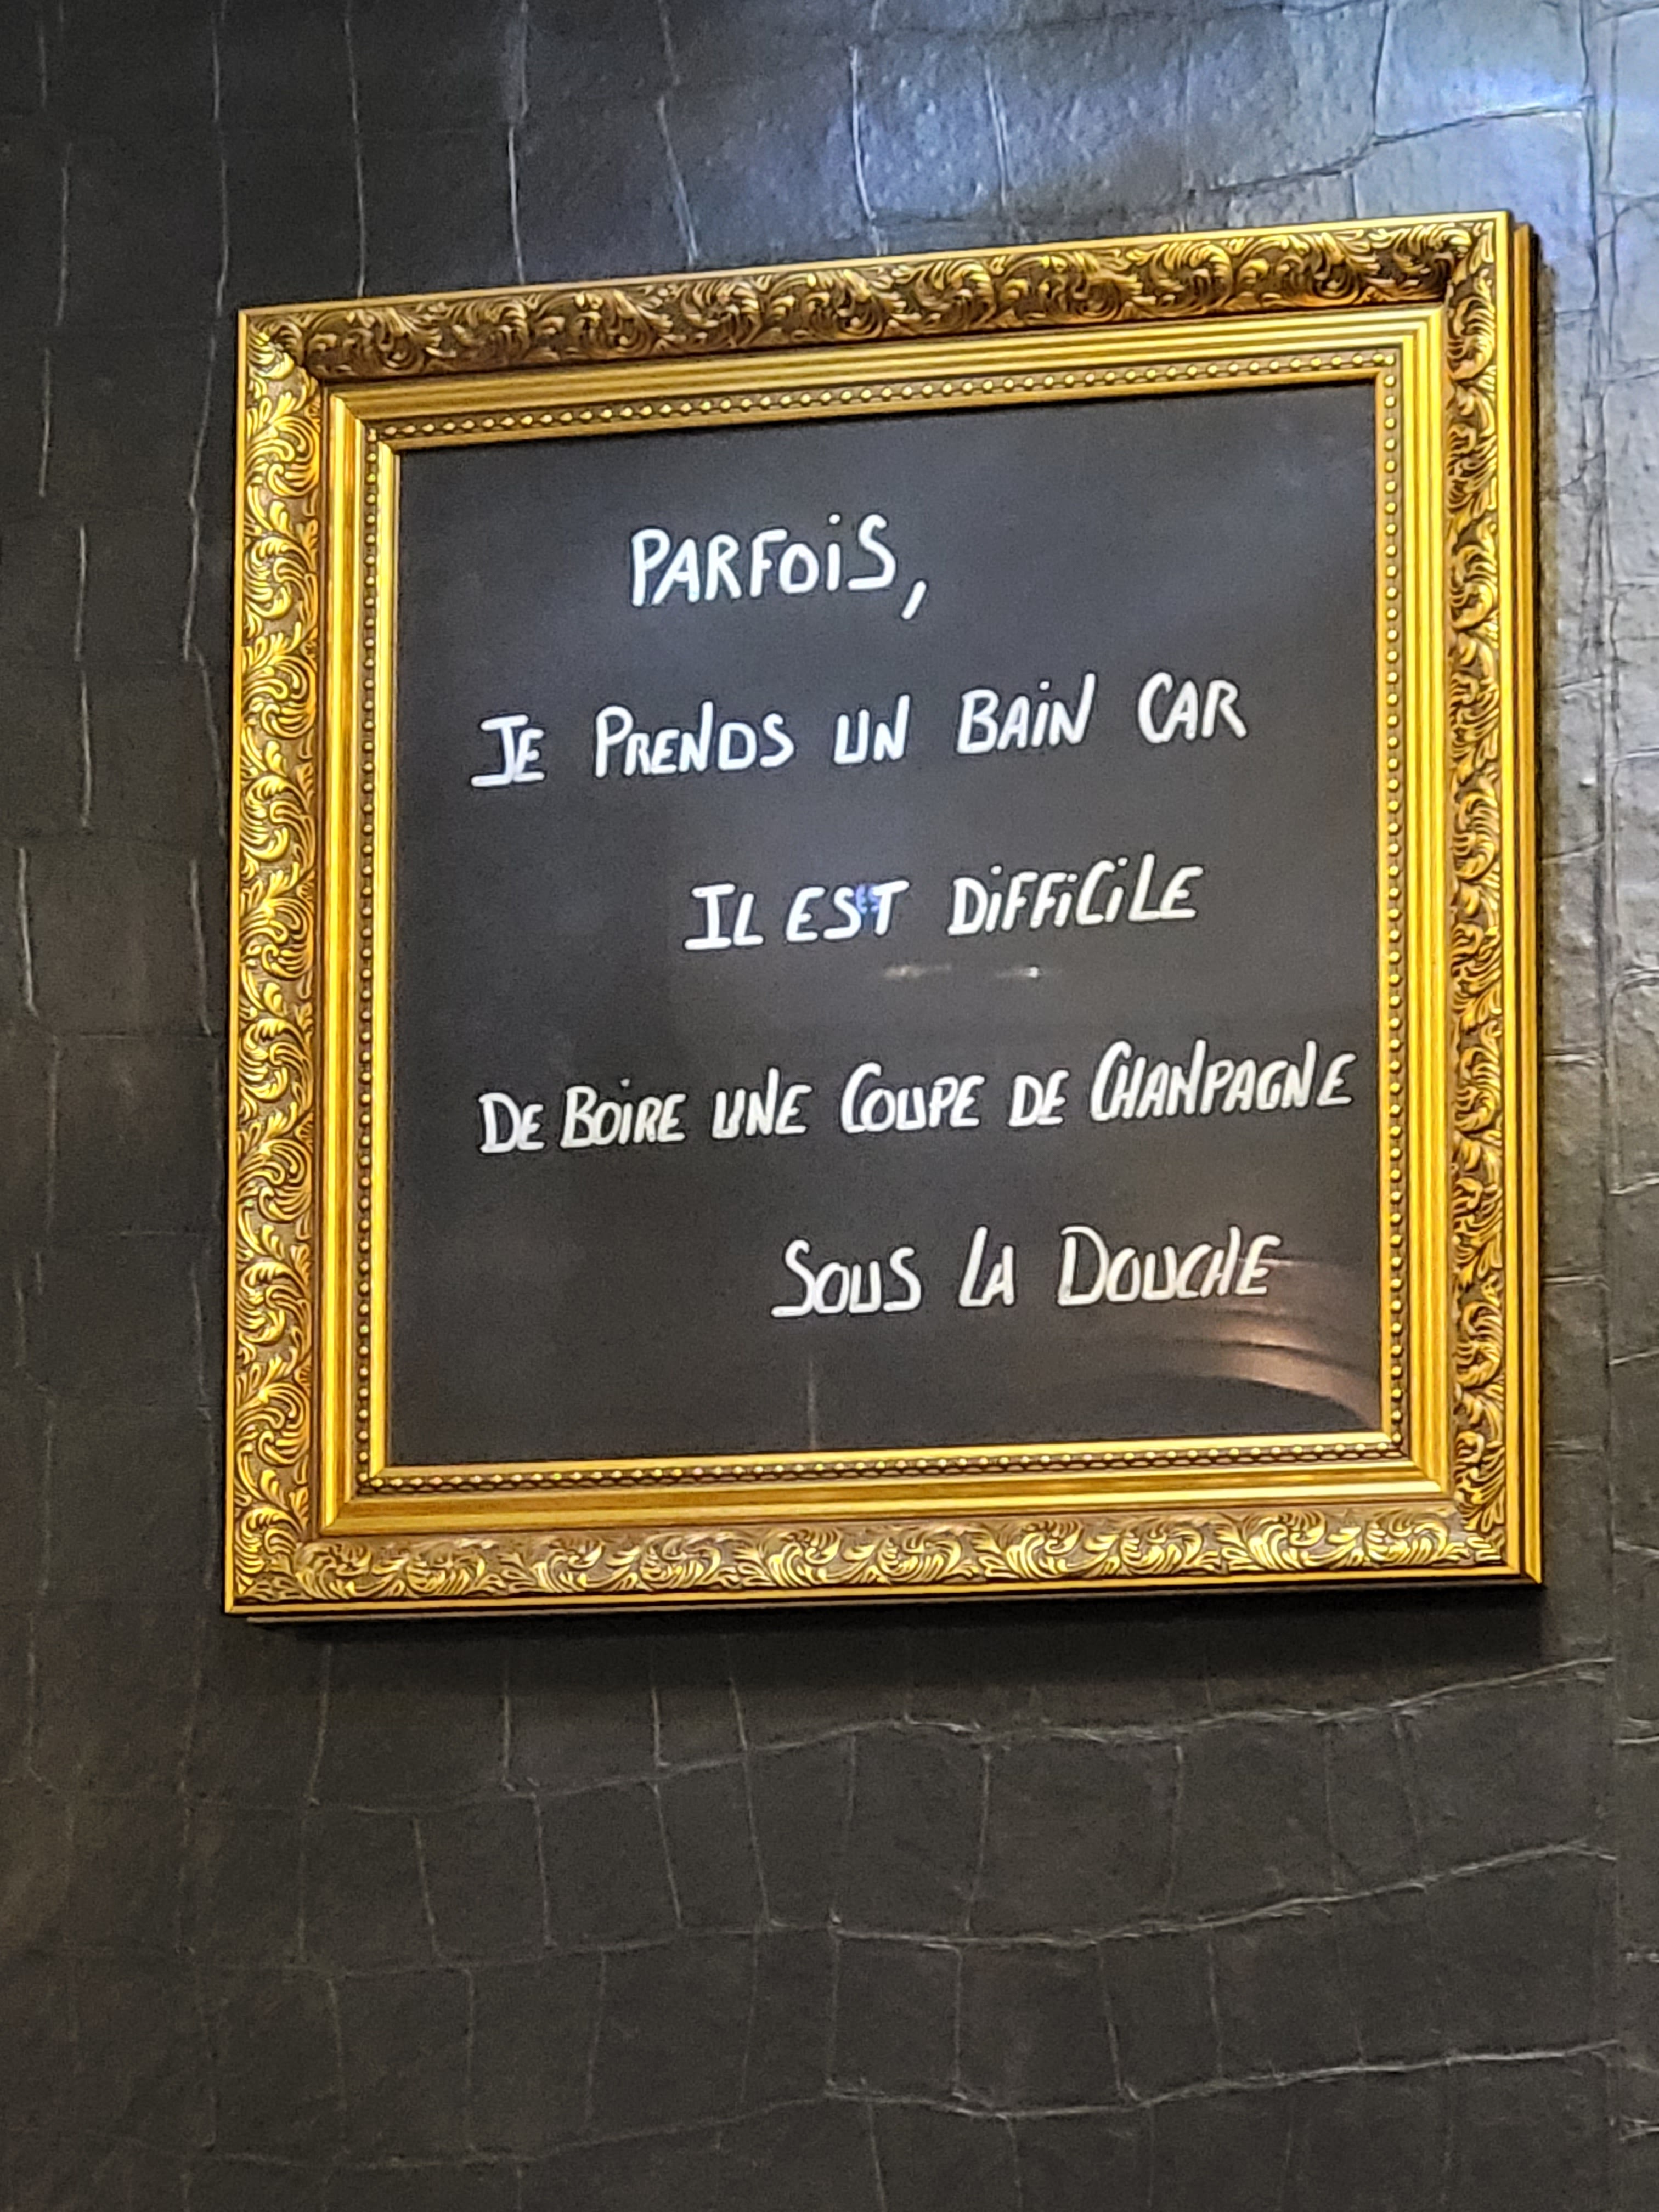 PARFOiS,
JE PRENDS UN BAiN CAR
IL EST DiFFiCiLE
DE BOiRE UNE COUPE DE CHANPAGNE
SOUS LA DOUCHE